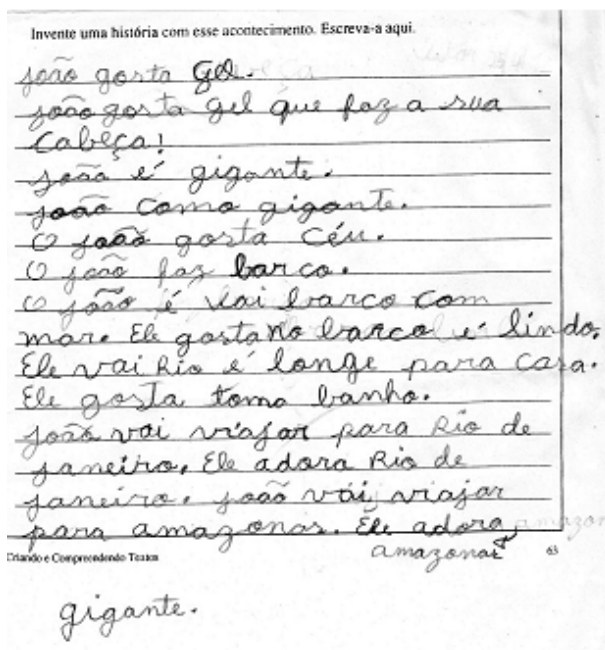 Invente uma história com esse acontecimento. Escreva-a aqui.
joão gosta Gel.
joão gosta gel que faz a sua
Cabeça!
joão é gigante.
joão como gigante.
O joão gosta céu.
O joão faz barco.
O joão é vai barco com
mar. Ele gosta no barco é lindo.
Ele vai Rio é longe para casa.
Ele gosta toma banho.
joão vai viajar para Rio de
janeiro. Ele adora Rio de
janeiro. joão vai viajar
para amazonas. Ele adora
amazonas
Criando e Compreendendo Textos
63
gigante.